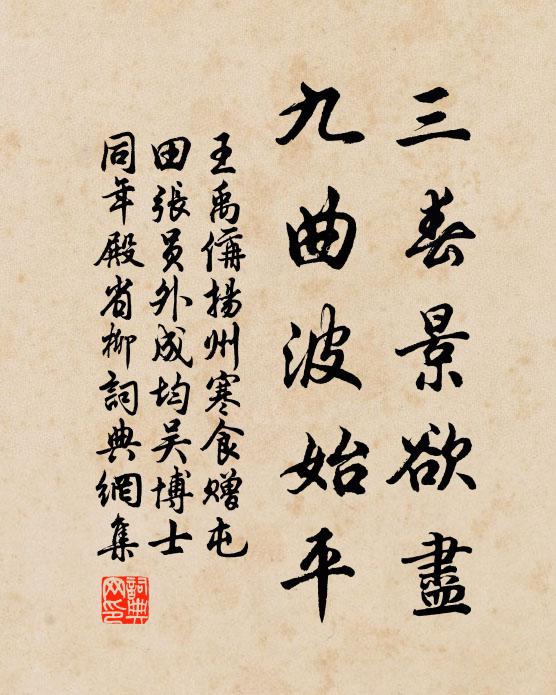 三春景欲盡
九曲波始平
王禹偁揚州寒食贈屯
田張員外成均吳博士
同年殿省柳詞典網集
詞典
网印